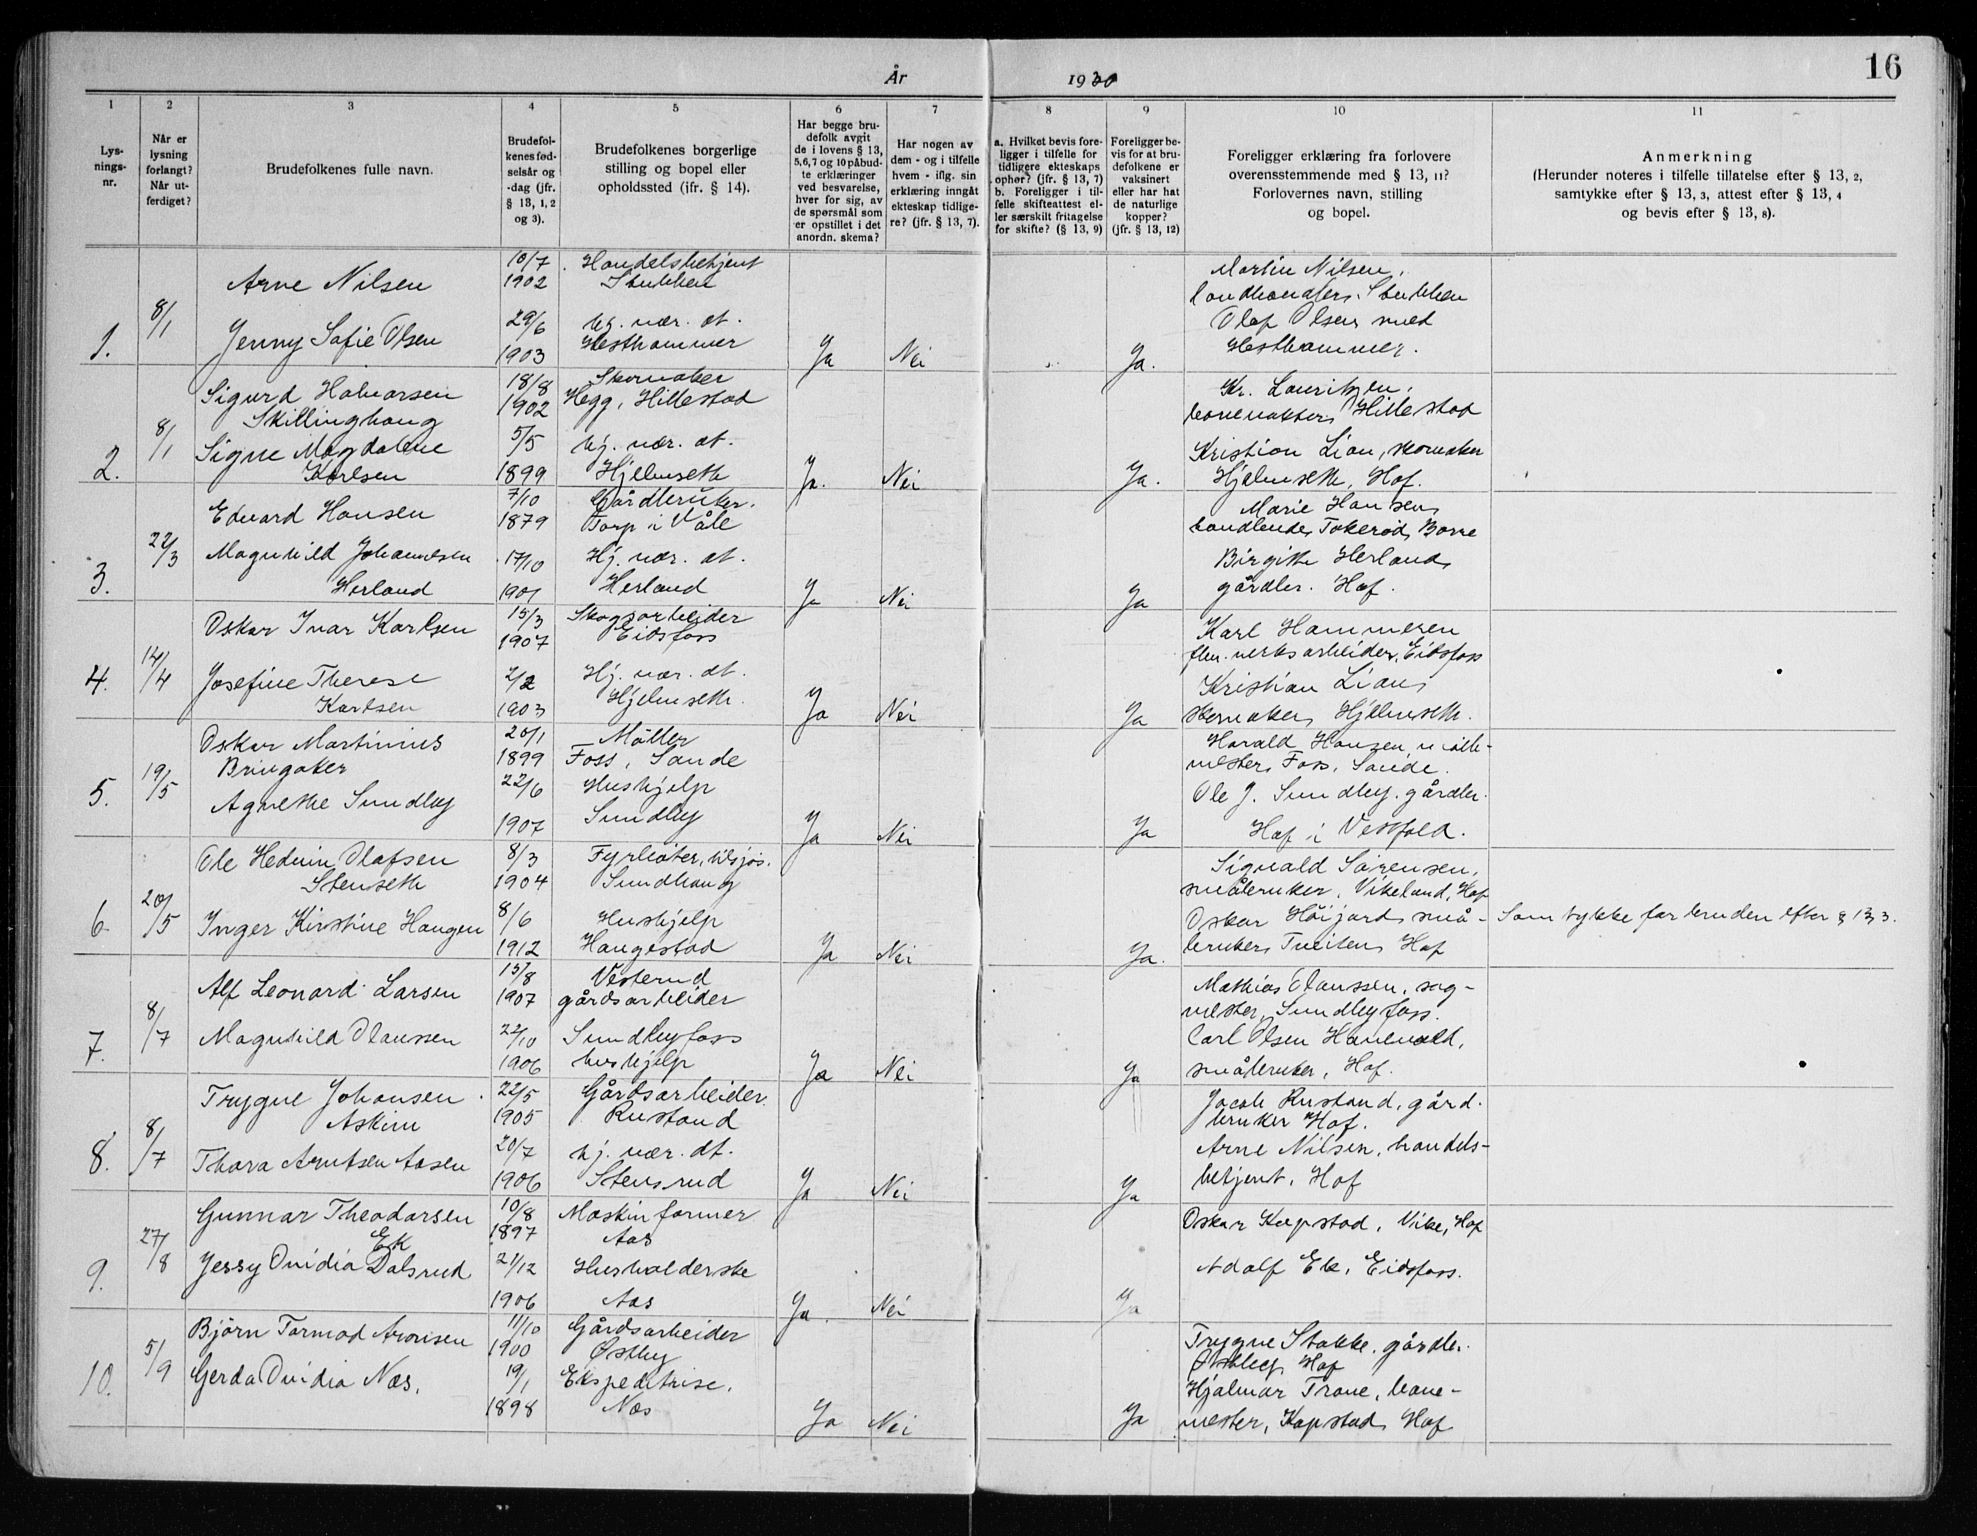 År 1930
16
1 2 3 4 5 6 7 8 9 10 11
Lys-
nings-
nr.
Når er
lysning
forlangt?
Når ut-
ferdiget?
Brudefolkenes fulle navn.
Brudefol-
kenes fød-
selsår og
-dag (jfr.
§ 13, 1, 2
og 3).
Brudefolkenes borgerlige
stilling og bopel eller
opholdssted (jfr. § 14).
Har begge bru-
defolk avgit
de i lovens § 13,
5, 6, 7 og 10 påbud-
te erklæringer
ved besvarelse,
hver for sig, av
de spørsmål som
er opstillet i det
anordn. skema?
Har nogen av
dem - og i tilfelle
hvem - iflg. sin
erklæring inngått
ektskap tidlige-
re? (jfr. § 13, 7).
a. Hvilket bevis fore-
ligger i tilfelle for
tidligere ekteskaps
ophør? (jfr. § 13, 7)
b. Foreligger i til-
felle skifteattest el-
ler særskilt fritagelse
for skifte? (§ 13, 9)
Foreligger be-
vis for at bru-
defolkene er
vaksinert
eller har hat
de naturlige
kopper?
(jfr. § 13, 12)
Foreligger erklæring fra forlovere
overensstemmende med § 13, 11?
Forlovernes navn, stilling
og bopel.
Anmerkning
(Herunder noteres i tilfelle tillatelse efter § 13, 2,
samtykke efter § 13, 3, attest efter § 13, 4
og bevis efter § 13, 8).
1.
8/1
Arne Nilsen
10/7
1902
Handelsbetjent
Stubben
Jenny Sofie Olsen
29/6
1903
hj. vær. dt.
Hesthammer
Ja
Nei
Ja.
Martin Nilsen,
landhandler, Stubben
Olaf Olsen med
Hesthammer.
2.
8/1
Sigurd Halvorsen
Skillinghaug
18/8
1902
Skomaker
Hegg, Hillestad
Signe Magdalene
Karlsen
5/5
1899
hj. vær. dt.
Hjelmseth
Ja.
Nei
Ja.
Kr. Lauritzen,
banevokter, Hillestad
Kristian Lian, skomaker
Hjelmseth, Hof.
3.
22/3
Edvard Hansen
7/10
1879
Gårdbruker.
Torp i Våle
Magnhild Johannesen
Herland
17/10
1901
Hj. vær. dt.
Herland
Ja
Nei
Ja
Marie Hansen,
handlende, Tokerød, Borre
Birgitte Herland,
gårdbr. Hof.
4.
14/4
Oskar Ivar Karlsen
15/3
1907
Skogsarbeider
Eidsfoss
Josefine Therese
Karlsen
2/2
1903
Hj. vær. dt.
Hjelmseth.
Ja
Nei
Ja
Karl Hammeren
fhv. verksarbeider, Eidsfoss
Kristian Lian,
skomaker, Hjelmseth.
5.
19/5
Oskar Martinius
Bringaker
20/1
1899
Møller
Foss, Sande
Agnethe Sundby
22/6
1907
Hushjelp
Sundby
Ja
Nei
Ja
Harald Hansen, mølle-
mester, Foss, Sande.
Ole J. Sundby. gårdbr.
Hof i Vestfold.
6.
20/5
Ole Hedvin Olafsen
Stenseth
8/3
1904
Fyrbøter, tilsjøs.
Sundhaug
Inger Kirstine Haugen
8/6
1912
Hushjelp
Haugestad
Ja
Nei
Ja.
Sigvald Sørensen,
småbruker, Vikeland, Hof
Oskar Høijord, små-
bruker, Tveiten, Hof
Samtykke for bruden efter § 13,3.
7.
8/7
Alf Leonard Larsen
15/8
1907
Vesterud
gårdsarbeider
Magnhild Olaussen
22/10
1906
Sundbyfoss
hushjelp
Ja
Nei
Ja
Mathias Olaussen, sag-
mester, Sundbyfoss.
Carl Olsen Hanevold,
småbruker, Hof.
8.
8/7
Trygve Johansen
Askim
22/5
1905
Gårdsarbeider.
Rustand
Thora Arntsen Aasen
20/7
1906
hj. vær. dt.
Stensrud
Ja
Nei
Ja
Jacob Rustand, gård-
bruker Hof.
Arne Nilsen, handels-
betjent, Hof
9.
27/8
Gunnar Theodorsen
Ek
10/8
1897
Maskinformer
Aas
Jessy Ovidia Dalsrud
21/12
1906
Husholderske
Aas
Ja.
Nei
Ja
Oskar Kopstad, Vike, Hof
Adolf Ek, Eidsfoss.
10.
5/9
Bjørn Tormod Aronsen
11/10
1900
Gårdsarbeider
Østby
Gerda Ovidia Næs.
19/1
1898
Ekspeditrise.
Næs
Ja
Nei
Ja
Trygve Stokke, gårdbr.
Østby, Hof
Hjalmar Trane, bane-
mester, Kopstad, Hof